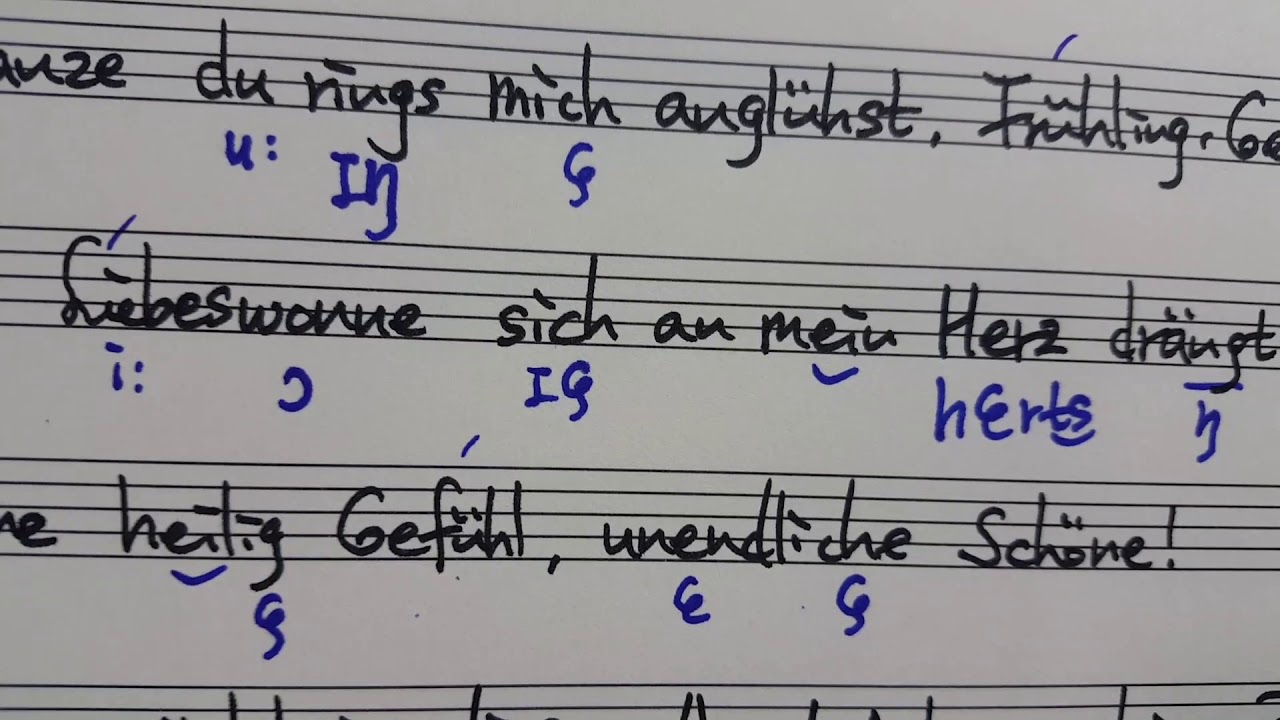 du rings mich anglühst, Frühling, Ge
u: Iŋ ç
Liebeswonne sich an mein Herz drängt
i: ɔ Iç hɛrts ŋ
heilig Gefühl, unendliche Schöne!
ç ɛ ç